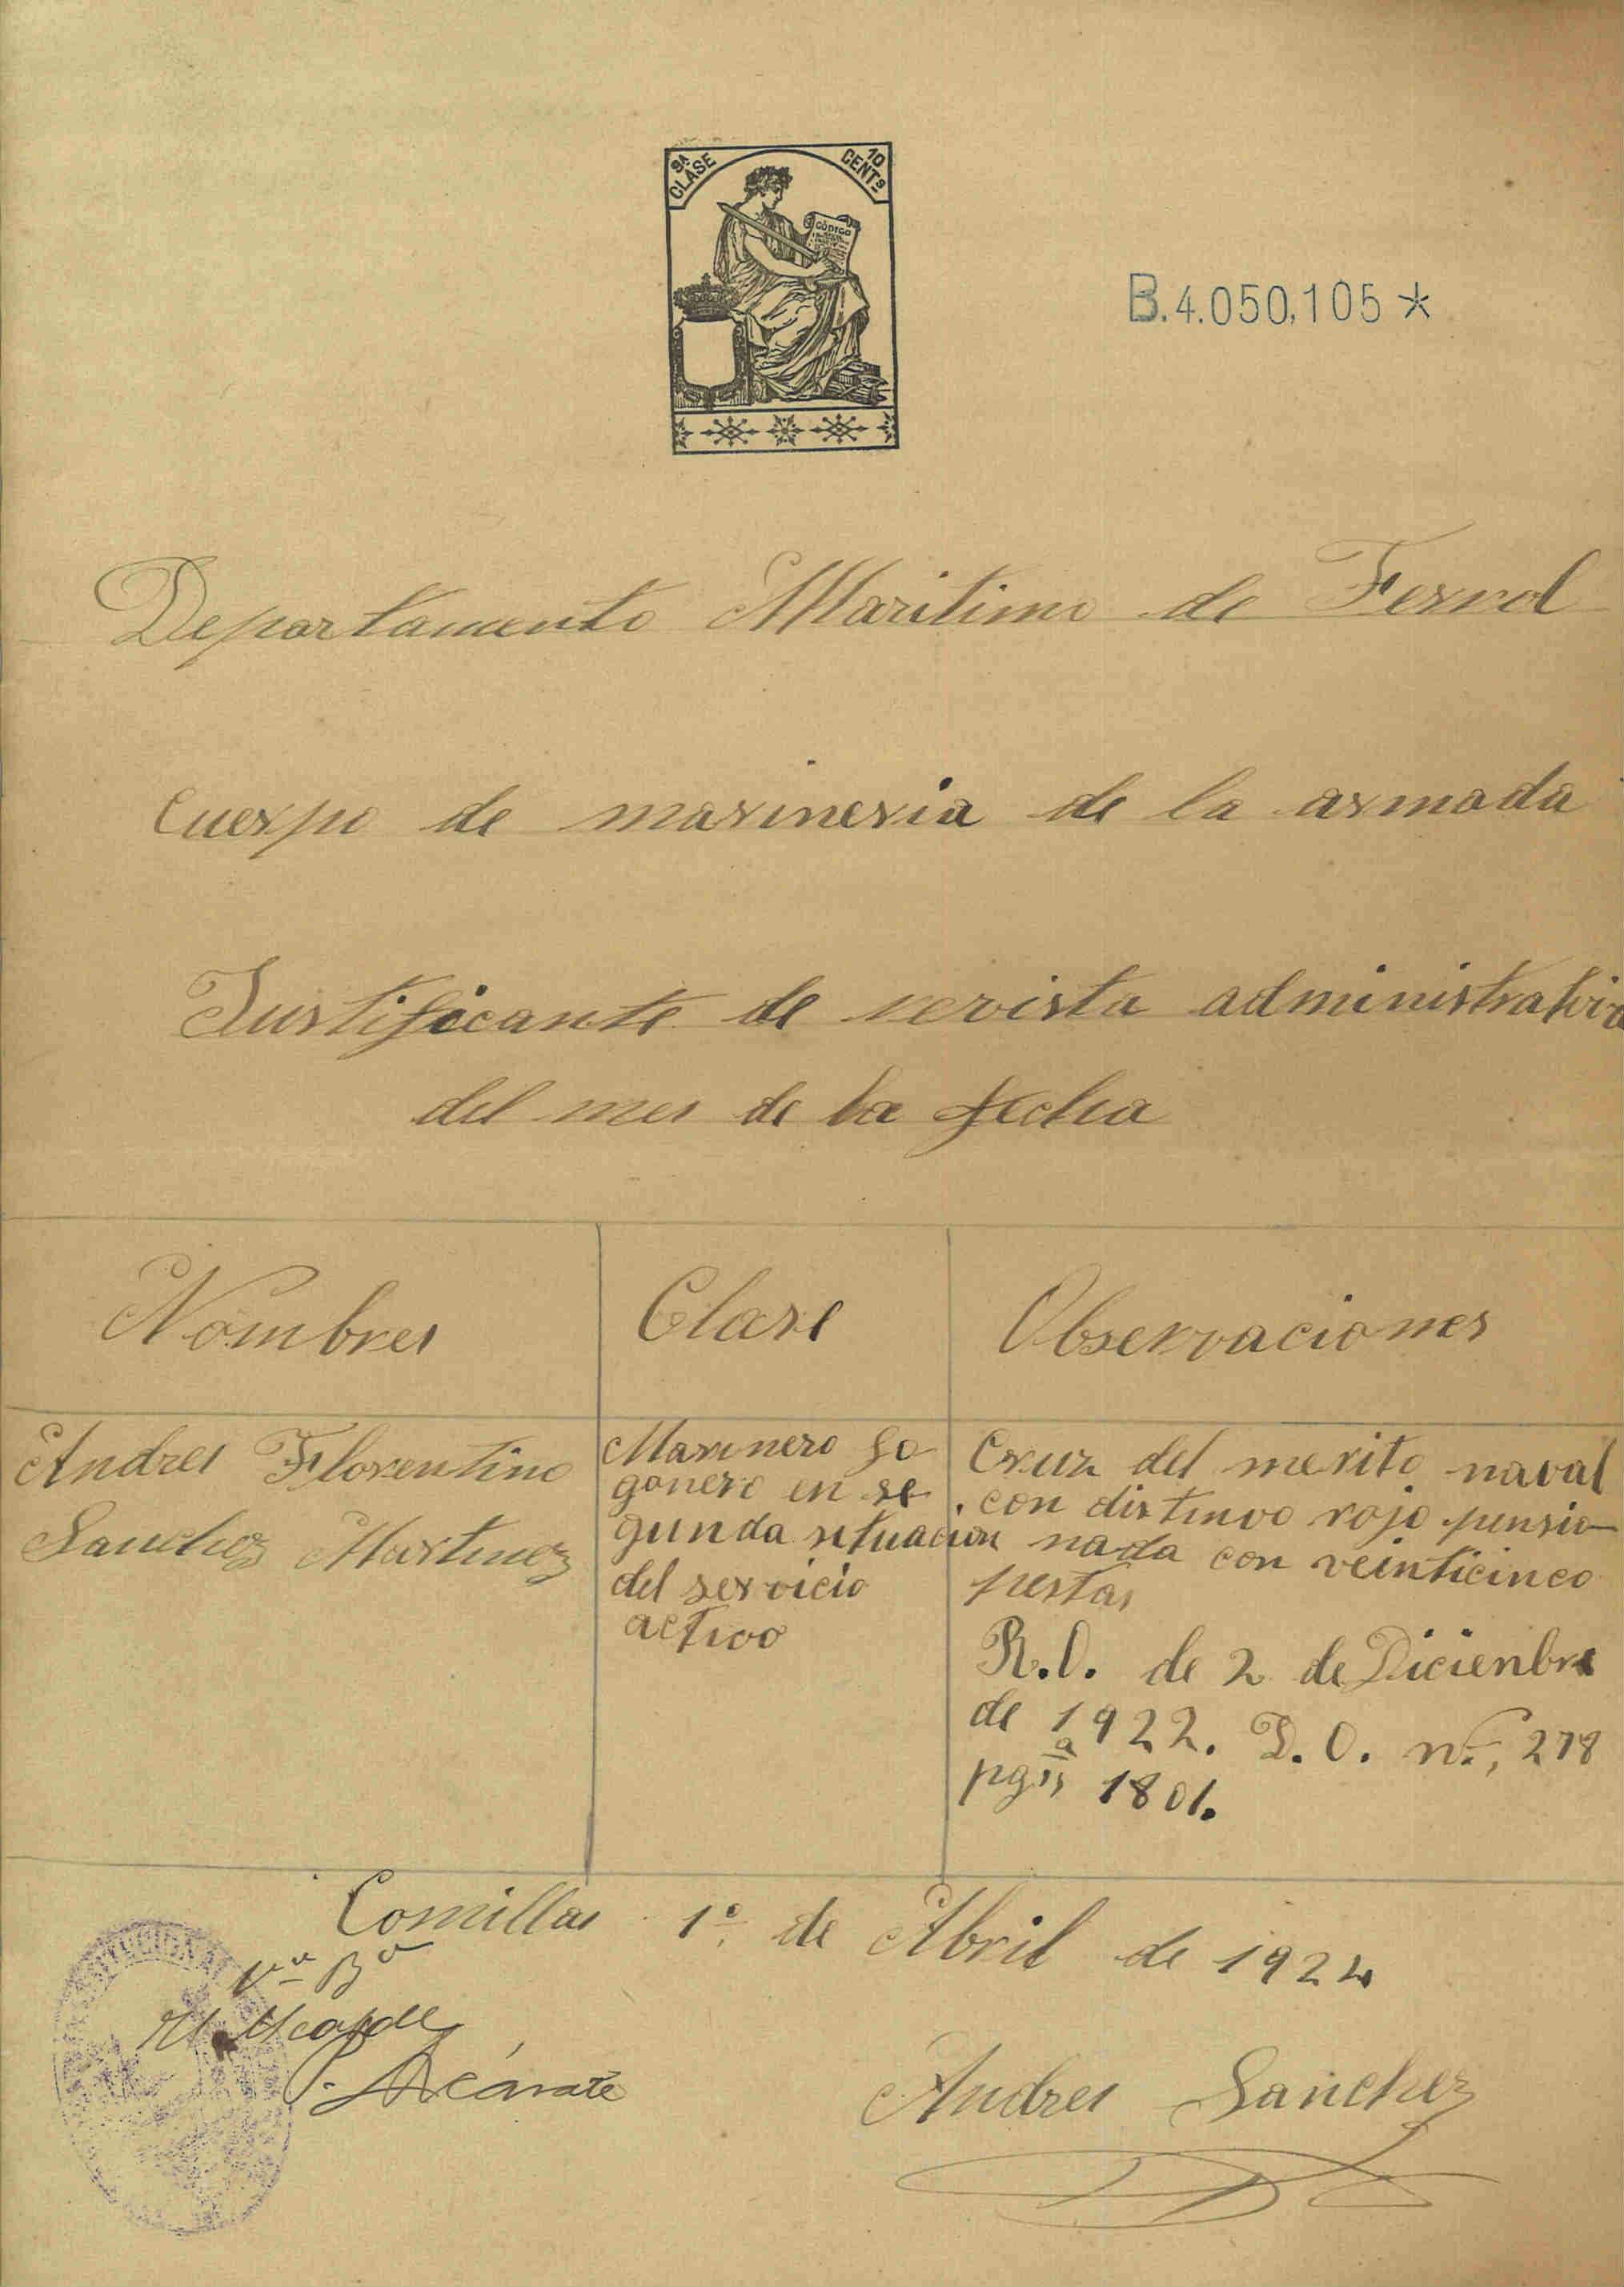 9A CLASE
10 CENTs
CÓDIGO
B.4.050.105*
Departamento Maritimo de Ferrol
Cuerpo de marineria de la armada
Justificante de revista administrativa
del mes de la fecha
Nombres
Clase
Observaciones
Andres Florentino
Sanchez Martinez
Marinero fo
gonero en se
gunda situacion
del servicio
activo
Cruz del merito naval
con distinvo rojo pensio-
nada con veinticinco
pestas
R.O. de 2 de Dicienbre
de 1922. D.O. nº, 278
pgª 1801.
Comillas 1º de Abril de 1924
Vº Bº
El Alcalde
Andres Sanchez